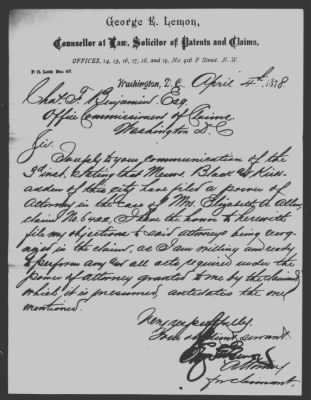 George E. Lemon,
Counsellor at Law, Solicitor of Patents and Claims,
OFFICES, 14, 15, 16, 17, 18, and 19, No. 916 F Street, N. W.
P. O. Lock Box 47.
Washington, D. C. April 4th, 1878
Chas. F. Benjamin Esq.
Office Commissioners of Claims
Washington D.C.
Sir.
In reply to your communication of the
3d inst. stating that Messrs Black &
of this city have filed a power of
Attorney in the case of Mrs. Elizabeth A. Allen,
claim No 6422, I have the honor to herewith
file my objections to said attorneys being recog-
nized in the claim, as I am willing and ready
to perform any & all acts required under the
power of attorney granted to me by the claimant,
which, it is presumed, antedates the one
mentioned.
Very respectfully
Your obedient servant
Geo E Lemon
Attorney
for claimant.